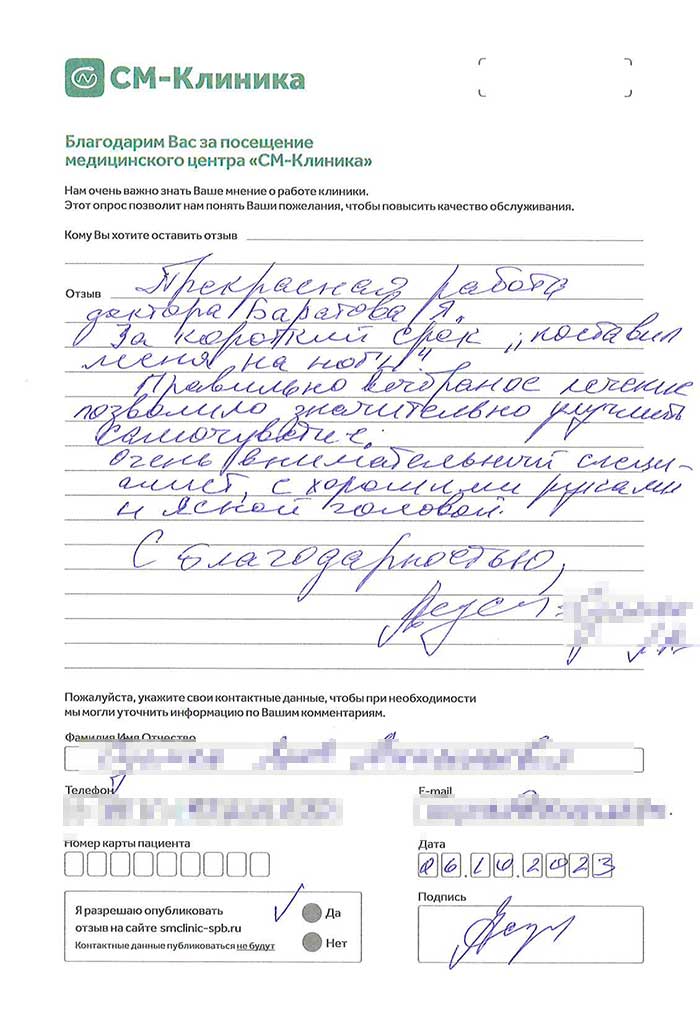 СМ-Клиника
Благодарим Вас за посещение
медицинского центра «СМ-Клиника»
Нам очень важно знать Ваше мнение о работе клиники.
Этот опрос позволит нам понять Ваши пожелания, чтобы повысить качество обслуживания.
Кому Вы хотите оставить отзыв
Отзыв Прекрасная работа
доктора Баратова Я.
За короткий срок „поставил
меня на ноги"
Правильно лечение
позволило значительно улучшить
самочувствие.
Очень внимательный специ-
алист, с хорошими руками
и ясной головой.
С благодарностью,
Пожалуйста, укажите свои контактные данные, чтобы при необходимости
мы могли уточнить информацию по Вашим комментариям.
Фамилия Имя Отчество
Телефон E-mail
Номер карты пациента Дата
06.10.2023
Подпись
Я разрешаю опубликовать Да
отзыв на сайте smclinic-spb.ru
Контактные данные публиковаться не будут Нет